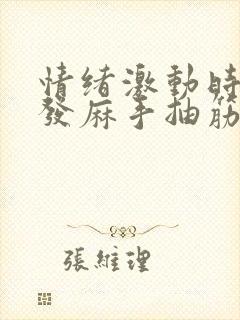 情绪激動時
發麻手抽筋
張維理